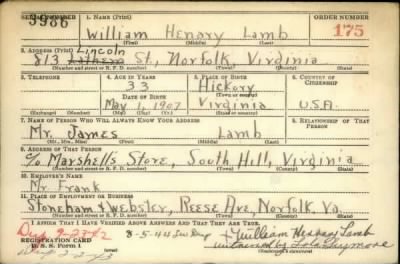 SERIAL NUMBER 1. NAME (Print) ORDER NUMBER
3986 William Henary Lamb 175
(First) (Middle) (Last)
2. ADDRESS (Print) Lincoln
813 St, Norfolk, Virginia
(Number and street or R. F. D. number) (Town) (County) (State)
3. TELEPHONE 4. AGE IN YEARS 5. PLACE OF BIRTH 6. COUNTRY OF CITIZENSHIP
33 Hickory
DATE OF BIRTH (Town or county)
May 1, 1907 Virginia U.S.A.
(Exchange) (Number) (Mo.) (Day) (Yr.) (State or country)
7. NAME OF PERSON WHO WILL ALWAYS KNOW YOUR ADDRESS 8. RELATIONSHIP OF THAT PERSON
Mr. James Lamb
(Mr., Mrs., Miss) (First) (Middle) (Last)
9. ADDRESS OF THAT PERSON
c/o Marshells Store, South Hill, Virginia
(Number and street or R. F. D. number) (Town) (County) (State)
10. EMPLOYER'S NAME
Mr. Frank
11. PLACE OF EMPLOYMENT OR BUSINESS
Stoneham & webster, Reese Ave, Norfolk, Va.
(Number and street or R. F. D. number) (Town) (County) (State)
I AFFIRM THAT I HAVE VERIFIED ABOVE ANSWERS AND THAT THEY ARE TRUE.
William Henary Lamb
REGISTRATION CARD
D. S. S. Form 1 witnessed by